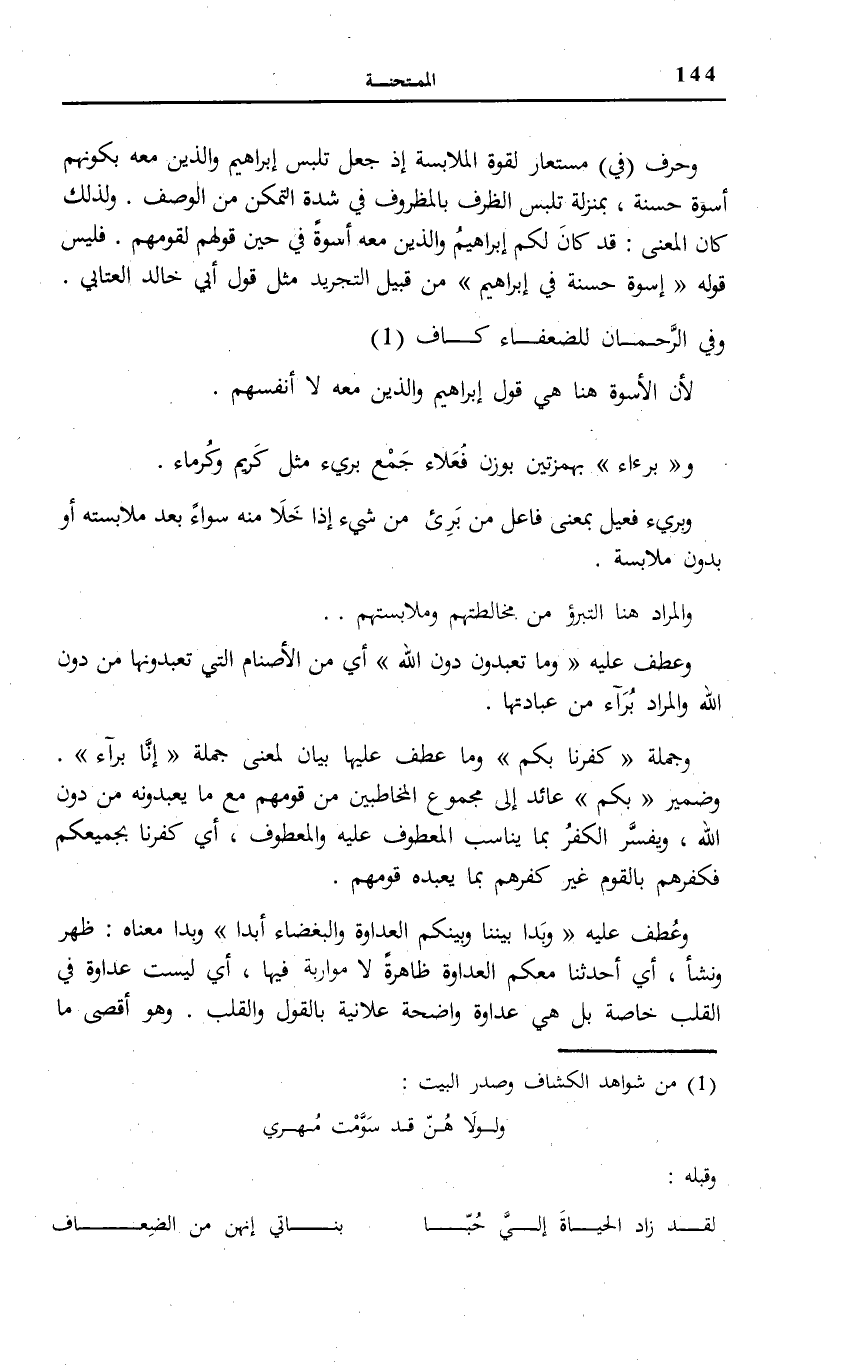 144
الممتحنـــة
وحرف (في) مستعار لقوة الملابسة إذ جعل تلبس إبراهيم والذين معه بكونهم
أسوة حسنة ، بمنزلة تلبس الظرف بالمظروف في شدة التمكن من الوصف . ولذلك
كان المعنى : قد كانَ لكم إبراهيمُ والذين معه أسوةً في حين قولهم لقومهم . فليس
قوله « إسوة حسنة في إبراهيم » من قبيل التجريد مثل قول أبي خالد العتابي .
وفي الرَّحـمــان للضعفـــاء كـــاف (1)
لأن الأسوة هنا هي قول إبراهيم والذين معه لا أنفسهم .
و« برءاء » بهمزتين بوزن فُعَلاء جَمْع بريء مثل كَريم وكُرماء .
وبريء فعيل بمعنى فاعل من بَرِئ من شيء إذا خَلَا منه سواءً بعد ملابسته أو
بدون ملابسة .
والمراد هنا التبرؤ من مخالطتهم وملابستهم . .
وعطف عليه « وما تعبدون دون الله » أي من الأصنام التي تعبدونها من دون
الله والمراد بُرَآء من عبادتها .
وجملة « كفرنا بكم » وما عطف عليها بيان لمعنى جملة « إنَّا برآء » .
وضمير « بكم » عائد إلى مجموع المخاطبين من قومهم مع ما يعبدونه من دون
الله ، ويفسَّر الكفرُ بما يناسب المعطوف عليه والمعطوف ، أي كفرنا بجميعكم
فكفرهم بالقوم غير كفرهم بما يعبده قومهم .
وعُطف عليه « وبَدا بيننا وبينكم العداوة والبغضاء أبدا » وبدا معناه : ظهر
ونشأ ، أي أحدثنا معكم العداوة ظاهرةً لا مواربة فيها ، أي ليست عداوة في
القلب خاصة بل هي عداوة واضحة علانية بالقول والقلب . وهو أقصى ما
(1) من شواهد الكشاف وصدر البيت :
ولـولَا هُـنّ قـد سَوَّمْت مُـهـري
وقبله :
لقـــد زاد الحيـــاةَ إلـــيَّ حُبّـــا بنـــــاتي إنهن من الضِعــــــاف